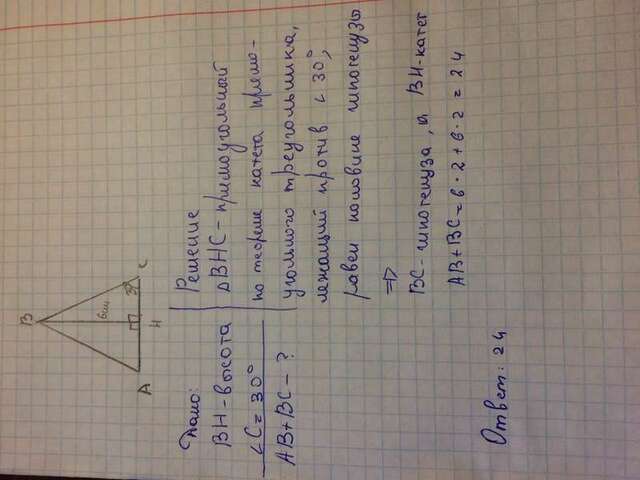 B
6см
30°
A
H
C
Дано:
BH-высота
∠C = 30°
AB+BC - ?
Решение
ΔBHC - прямоугольный
по теореме катета прямо-
угольного треугольника,
лежащий против ∠30°,
равен половине гипотенузы
⇒
BC - гипотенуза, а BH-катет
AB+BC=6·2+6·2=24
Ответ: 24